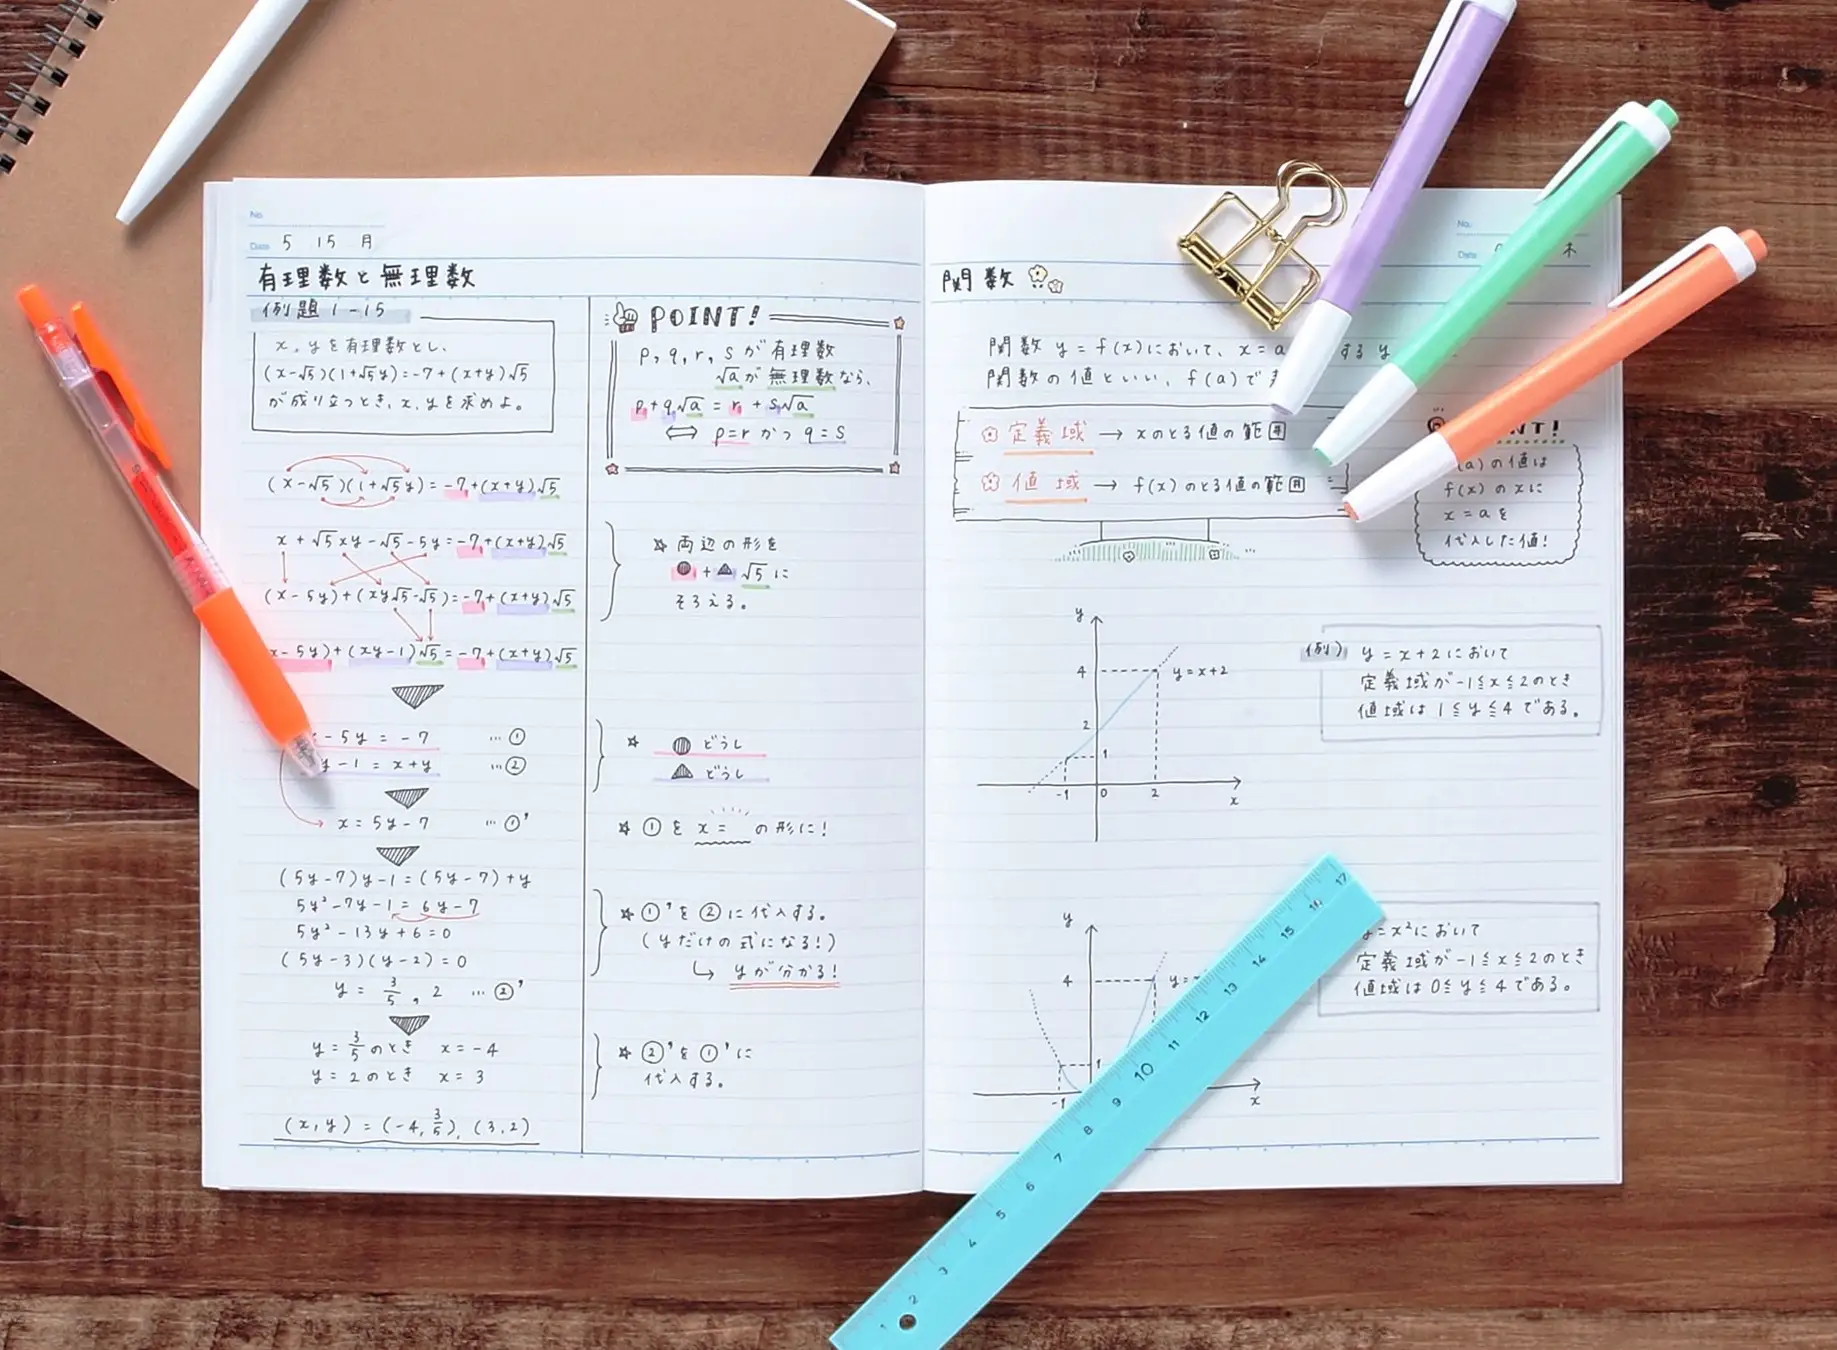 No.
Date 5 15 月
有理数と無理数
例題1-15
x, yを有理数とし、
(x-√5)(1+√5y)=-7+(x+y)√5
が成り立つとき、x, yを求めよ。
(x-√5)(1+√5y)=-7+(x+y)√5
x+√5xy-√5-5y=-7+(x+y)√5
(x-5y)+(xy√5-√5)=-7+(x+y)√5
x-5y)+(xy-1)√5=-7+(x+y)√5
-5y=-7 …①
y-1=x+y …②
x=5y-7 …①'
(5y-7)y-1=(5y-7)+y
5y²-7y-1=6y-7
5y²-13y+6=0
(5y-3)(y-2)=0
y=3/5, 2 …②'
y=3/5のとき x=-4
y=2のとき x=3
(x,y)=(-4,3/5),(3,2)
POINT!
p, q, r, sが有理数
√aが無理数なら、
p+q√a=r+s√a
⇔ p=rかつq=s
☆両辺の形を
●+▲√5に
そろえる。
☆ ●どうし
▲どうし
☆①をx= の形に!
☆①'を②に代入する。
(yだけの式になる!)
↳ yが分かる!
☆②'を①'に
代入する。
No.
Date 木
関数
関数y=f(x)において、x=a する y
関数の値といい、f(a)で
定義域→xのとる値の範囲
値域→f(x)のとる値の範囲
NT!
(a)の値は
f(x)のxに
x=aを
代入した値!
y
4
y=x+2
2
1
-1 0 2
x
例)
y=x+2において
定義域が-1≦x≦2のとき
値域は1≦y≦4である。
y
4
y=
1
-1
x
=x²において
定義域が-1≦x≦2のとき
値域は0≦y≦4である。
1 2 3 4 5 6 7 8 9 10 11 12 13 14 15 16 17